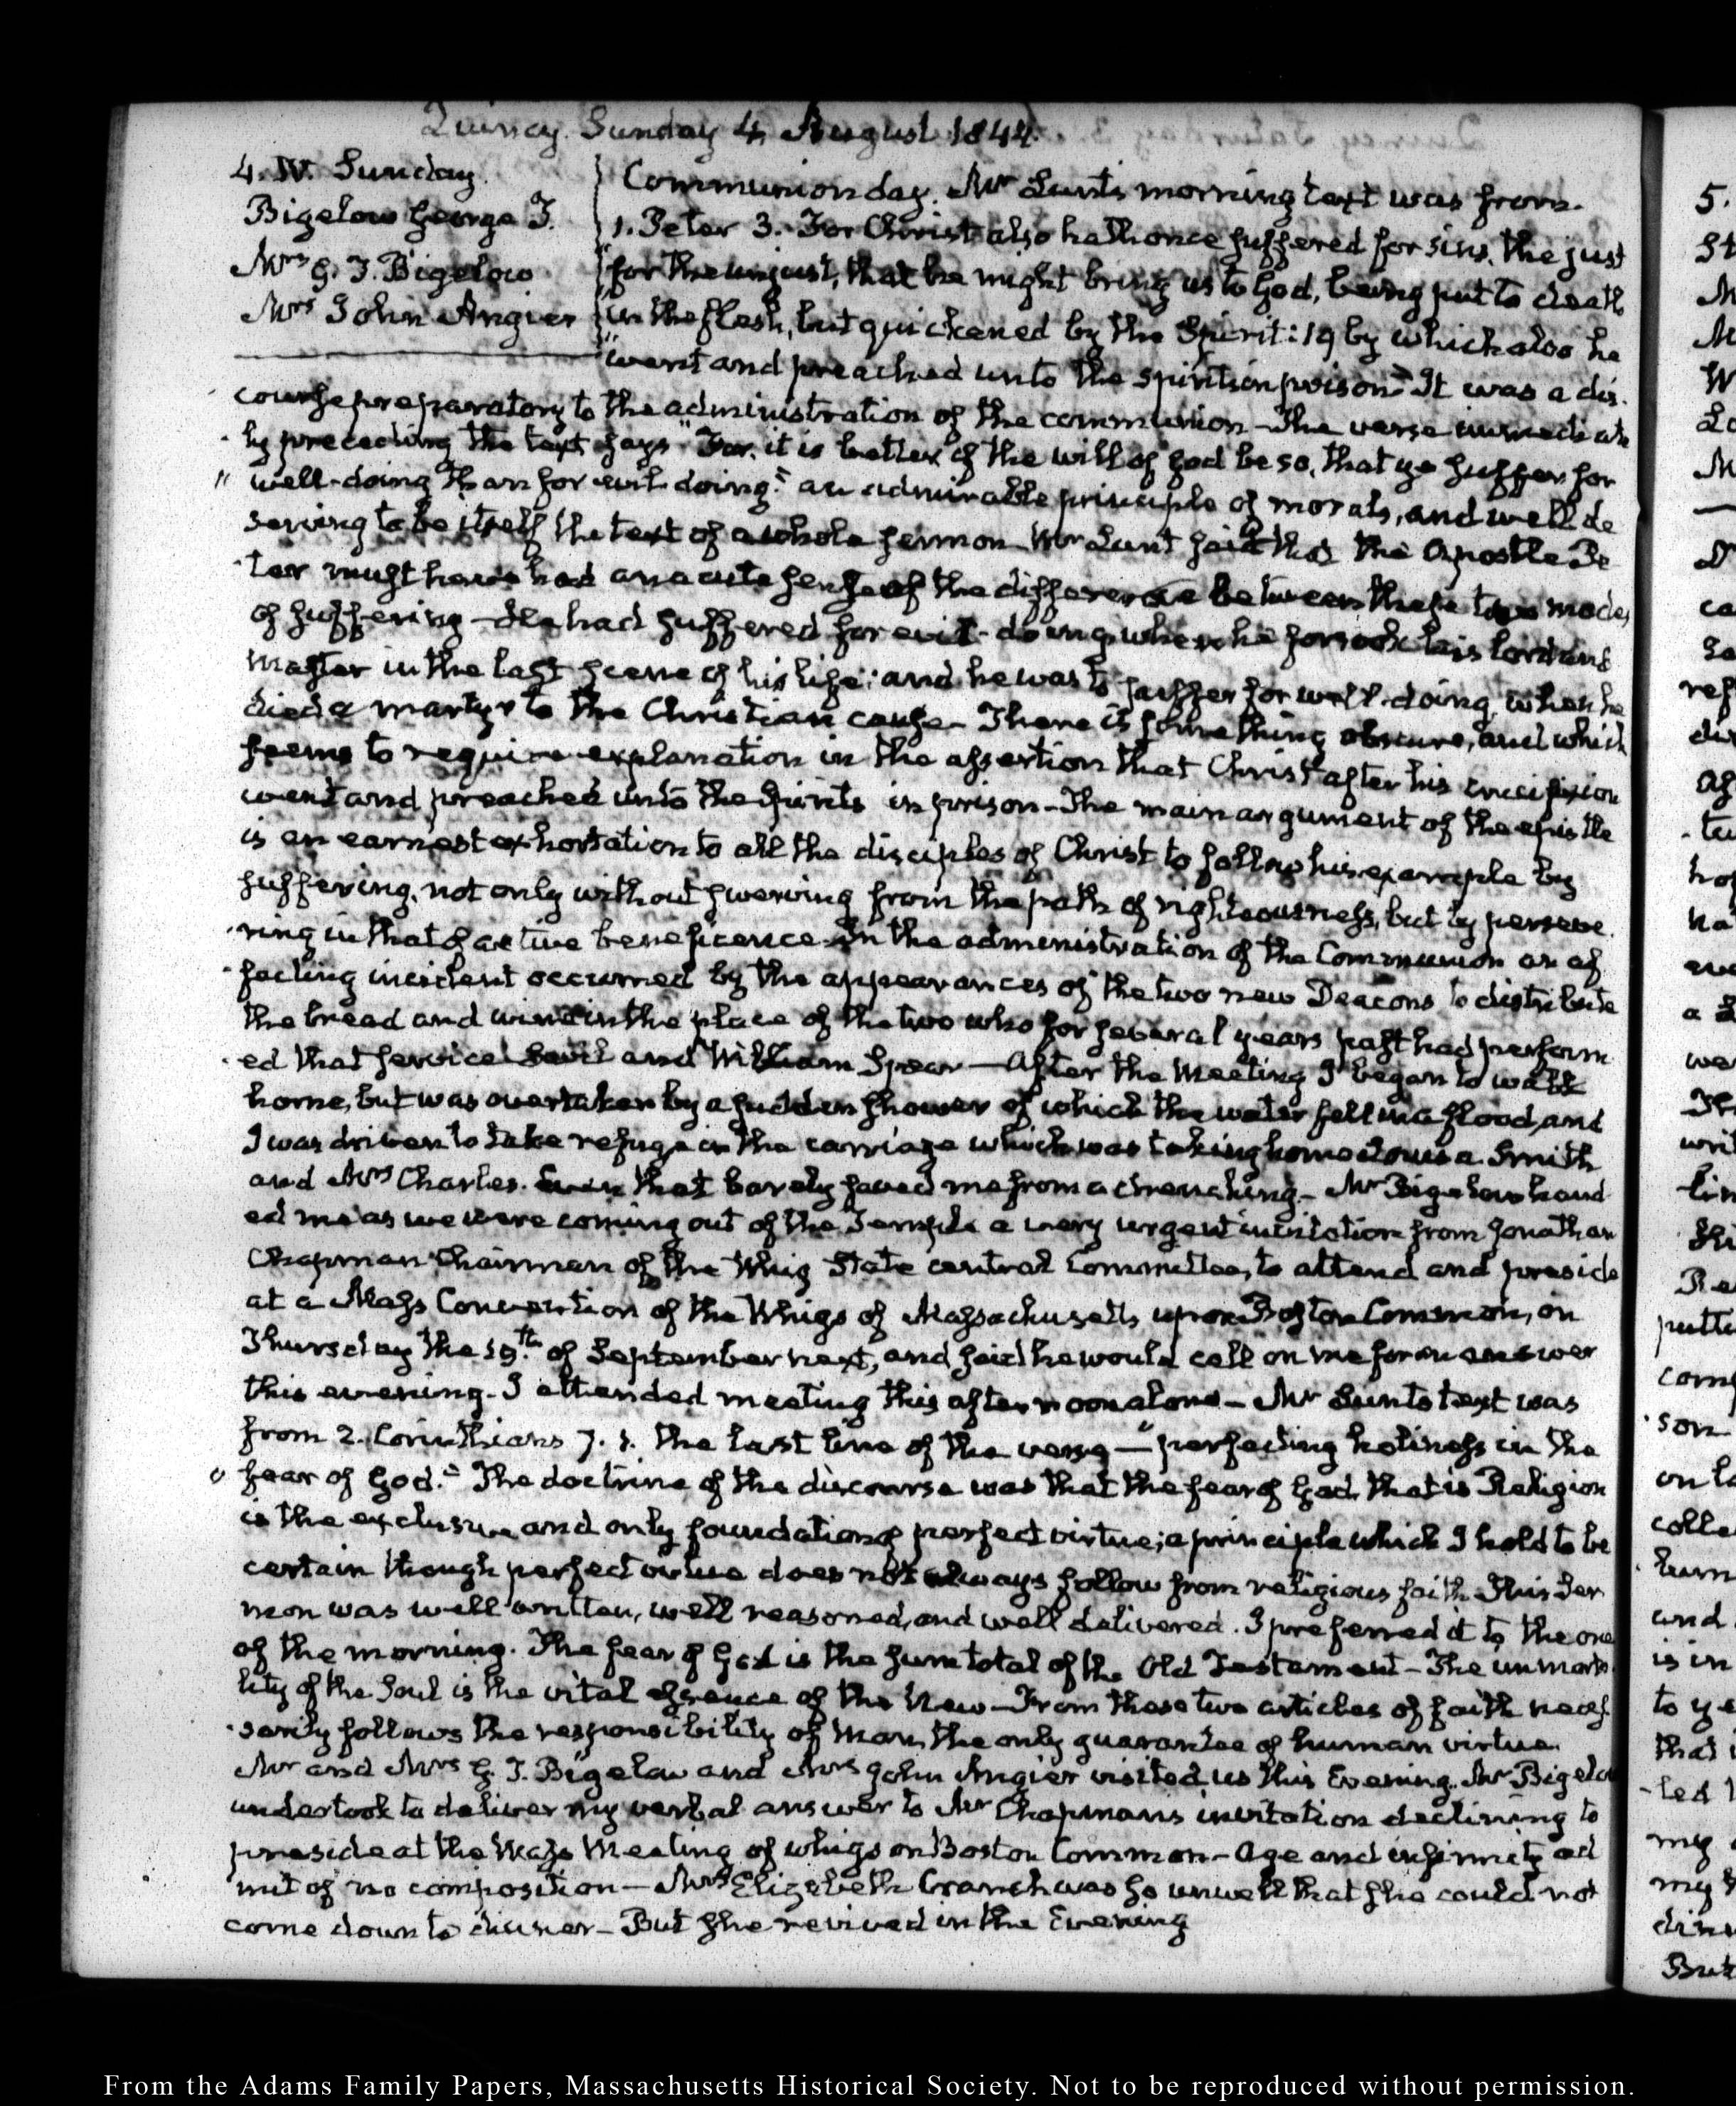 Quincy. Sunday 4. August 1844.
4. IV. Sunday.
Bigelow George T.
Mrs G. T. Bigelow
Mrs John Angier
Communion day. Mr Lunt's morning text was from
1. Peter 3. For Christ also hath once suffered for sins, the just
"for the unjust, that he might bring us to God, being put to death
"in the flesh, but quickened by the Spirit: 19 by which also he
"went and preached unto the spirits in prison" It was a dis-
course preparatory to the administration of the communion—The verse immediate
ly preceding the text says "For, it is better if the will of God be so, that ye suffer for
" well-doing than for evil doing." an admirable principle of morals, and well de
serving to be itself the text of a whole sermon—Mr Lunt said that the Apostle Pe
ter must have had an acute sense of the difference between these two modes
of suffering—He had suffered for evil-doing when he forsook his lord and
master in the last scene of his life; and he was to suffer for well-doing, when he
died a martyr to the Christian cause—There is something obscure, and which
seems to require explanation in the assertion that Christ after his crucifixion
went and preached unto the Spirits in prison—The main argument of the epistle
is an earnest exhortation to all the disciples of Christ to follow his example by
suffering, not only without swerving from the path of righteousness, but by perseve
ring in that of active beneficence—In the administration of the Communion an af
fecting incident occurred by the appearances of the two new Deacons to distribute
the bread and wine in the place of the two who for several years past had perform
ed that service Savil and William Spear—After the Meeting I began to walk
home, but was overtaken by a sudden shower of which the water fell in a flood, and
I was driven to take refuge in the carriage which was taking home Louisa Smith
and Mrs Charles. Even that barely saved me from a drenching—Mr Bigelow hand
ed me as we were coming out of the Temple a very urgent invitation from Jonathan
Chapman Chairman of the Whig State central Committee, to attend and preside
at a Mass Convention of the Whigs of Massachusetts, upon Boston Common, on
Thursday the 19th of September next, and said he would call on me for an answer
this evening. I attended meeting this afternoon alone—Mr Lunts text was
from 2. Corinthians 7. 1. the last line of the verse—"perfecting holiness in the
" fear of God." The doctrine of the discourse was that the fear of God, that is Religion
is the exclusive and only foundation of perfect virtue; a principle which I hold to be
certain though perfect virtue does not always follow from religious faith. This Ser
mon was well written, well reasoned, and well delivered. I preferred it to the one
of the morning. The fear of God is the sum total of the Old Testament—The immorta
lity of the Soul is the vital essence of the New—From these two articles of faith neces
sarily follows the responsibility of man, the only guarantee of human virtue.
Mr and Mrs G. T. Bigelow and Mrs John Angier visited us this Evening. Mr Bigelow
undertook to deliver my verbal answer to Mr Chapmans invitation declining to
preside at the Mass Meeting of whigs on Boston Common—Age and infirmity ad
mit of no composition—Mrs Elizabeth Cranch was so unwell that she could not
come down to dinner—But she revived in the Evening
From the Adams Family Papers, Massachusetts Historical Society. Not to be reproduced without permission.